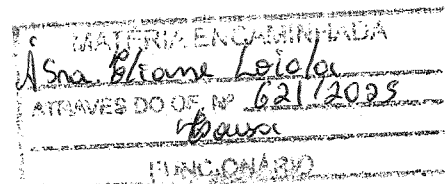 MATÉRIA ENCAMINHADA
Á Sra. Eliane Loiola
ATRAVÉS DO OF. Nº 621/2025
FUNCIONÁRIO